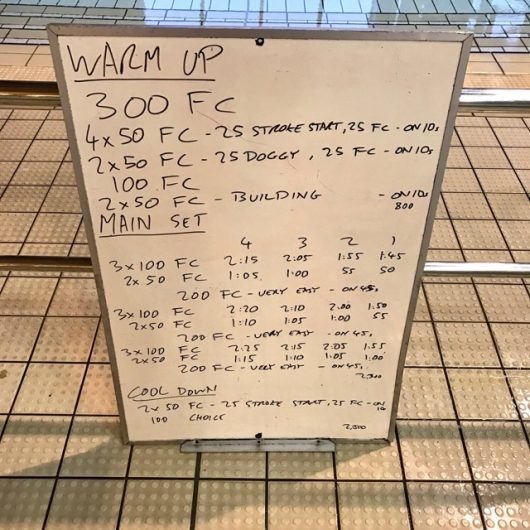 WARM UP
300 FC
4x50 FC - 25 STROKE START, 25 FC - ON 10s
2x50 FC - 25 DOGGY, 25 FC - ON 10s
100 FC
2x50 FC - BUILDING - ON 10s
800
MAIN SET
4 3 2 1
3x100 FC 2:15 2:05 1:55 1:45
2x50 FC 1:05 1:00 55 50
200 FC - VERY EASY - ON 45s
3x100 FC 2:20 2:10 2:00 1:50
2x50 FC 1:10 1:05 1:00 55
200 FC - VERY EASY - ON 45s
3x100 FC 2:25 2:15 2:05 1:55
2x50 FC 1:15 1:10 1:05 1:00
200 FC - VERY EASY - ON 45s
COOL DOWN
2x50 FC - 25 STROKE START, 25 FC - ON 10
100 CHOICE